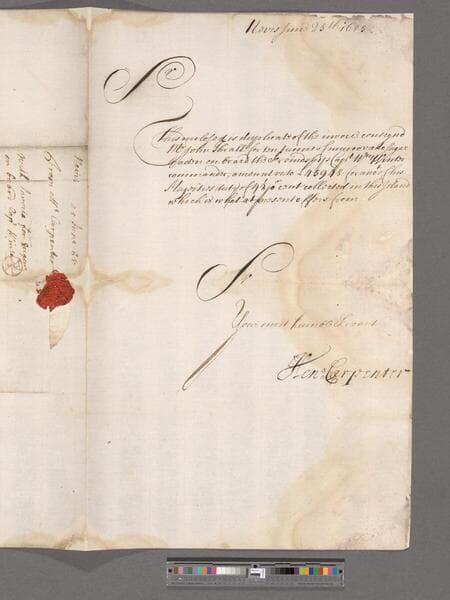 Nevis June 25th 1685
Sr
This inclosed is duplicate of the invoice consignd
Mr John Thrall for ten tunnes of muscovado sugar
laden on board the Friendship Capt Wm Winter
commander, amount into 45945 for acco of his
Majesties duty of 4½ p cent collected in this Island
which is what at present offers from
Sr
Your most humble Servant
Hen: Carpenter
Nevis 25 June 85
From Mr Carpenter
with Invoice for Sugar
on board Capt Winter